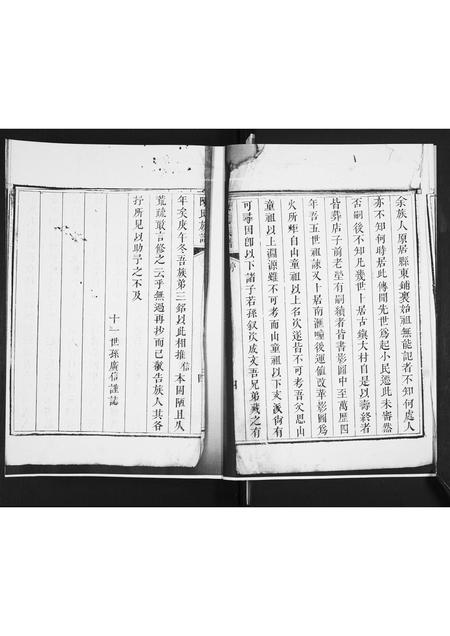 余族人原居縣東鋪裏始祖無能記者不知何處人
亦不知何時居此傳聞先世為起小民遷此未審然
否嗣後不知凡幾世卜居古鎮大村自是以壽終者
皆葬店子前老塋有嗣續者皆書影圖中至萬歷四
年吾五世祖諫又卜居南滙 後運值改革影圖為
火所 自山童祖以上名次遂皆不可考吾父思山
童祖以上淵源雖不可考而山童祖以下支派尚有
可尋因即以下諸子若孫叙次成文吾兄弟藏之有
年矣庚午冬吾族弟三銘以此相推信本固陋且久
荒疏敢言修之云乎無過再抄而已獻告族人其各
抒所見以助予之不及
十一世孫廣信謹誌
氏族譜
四